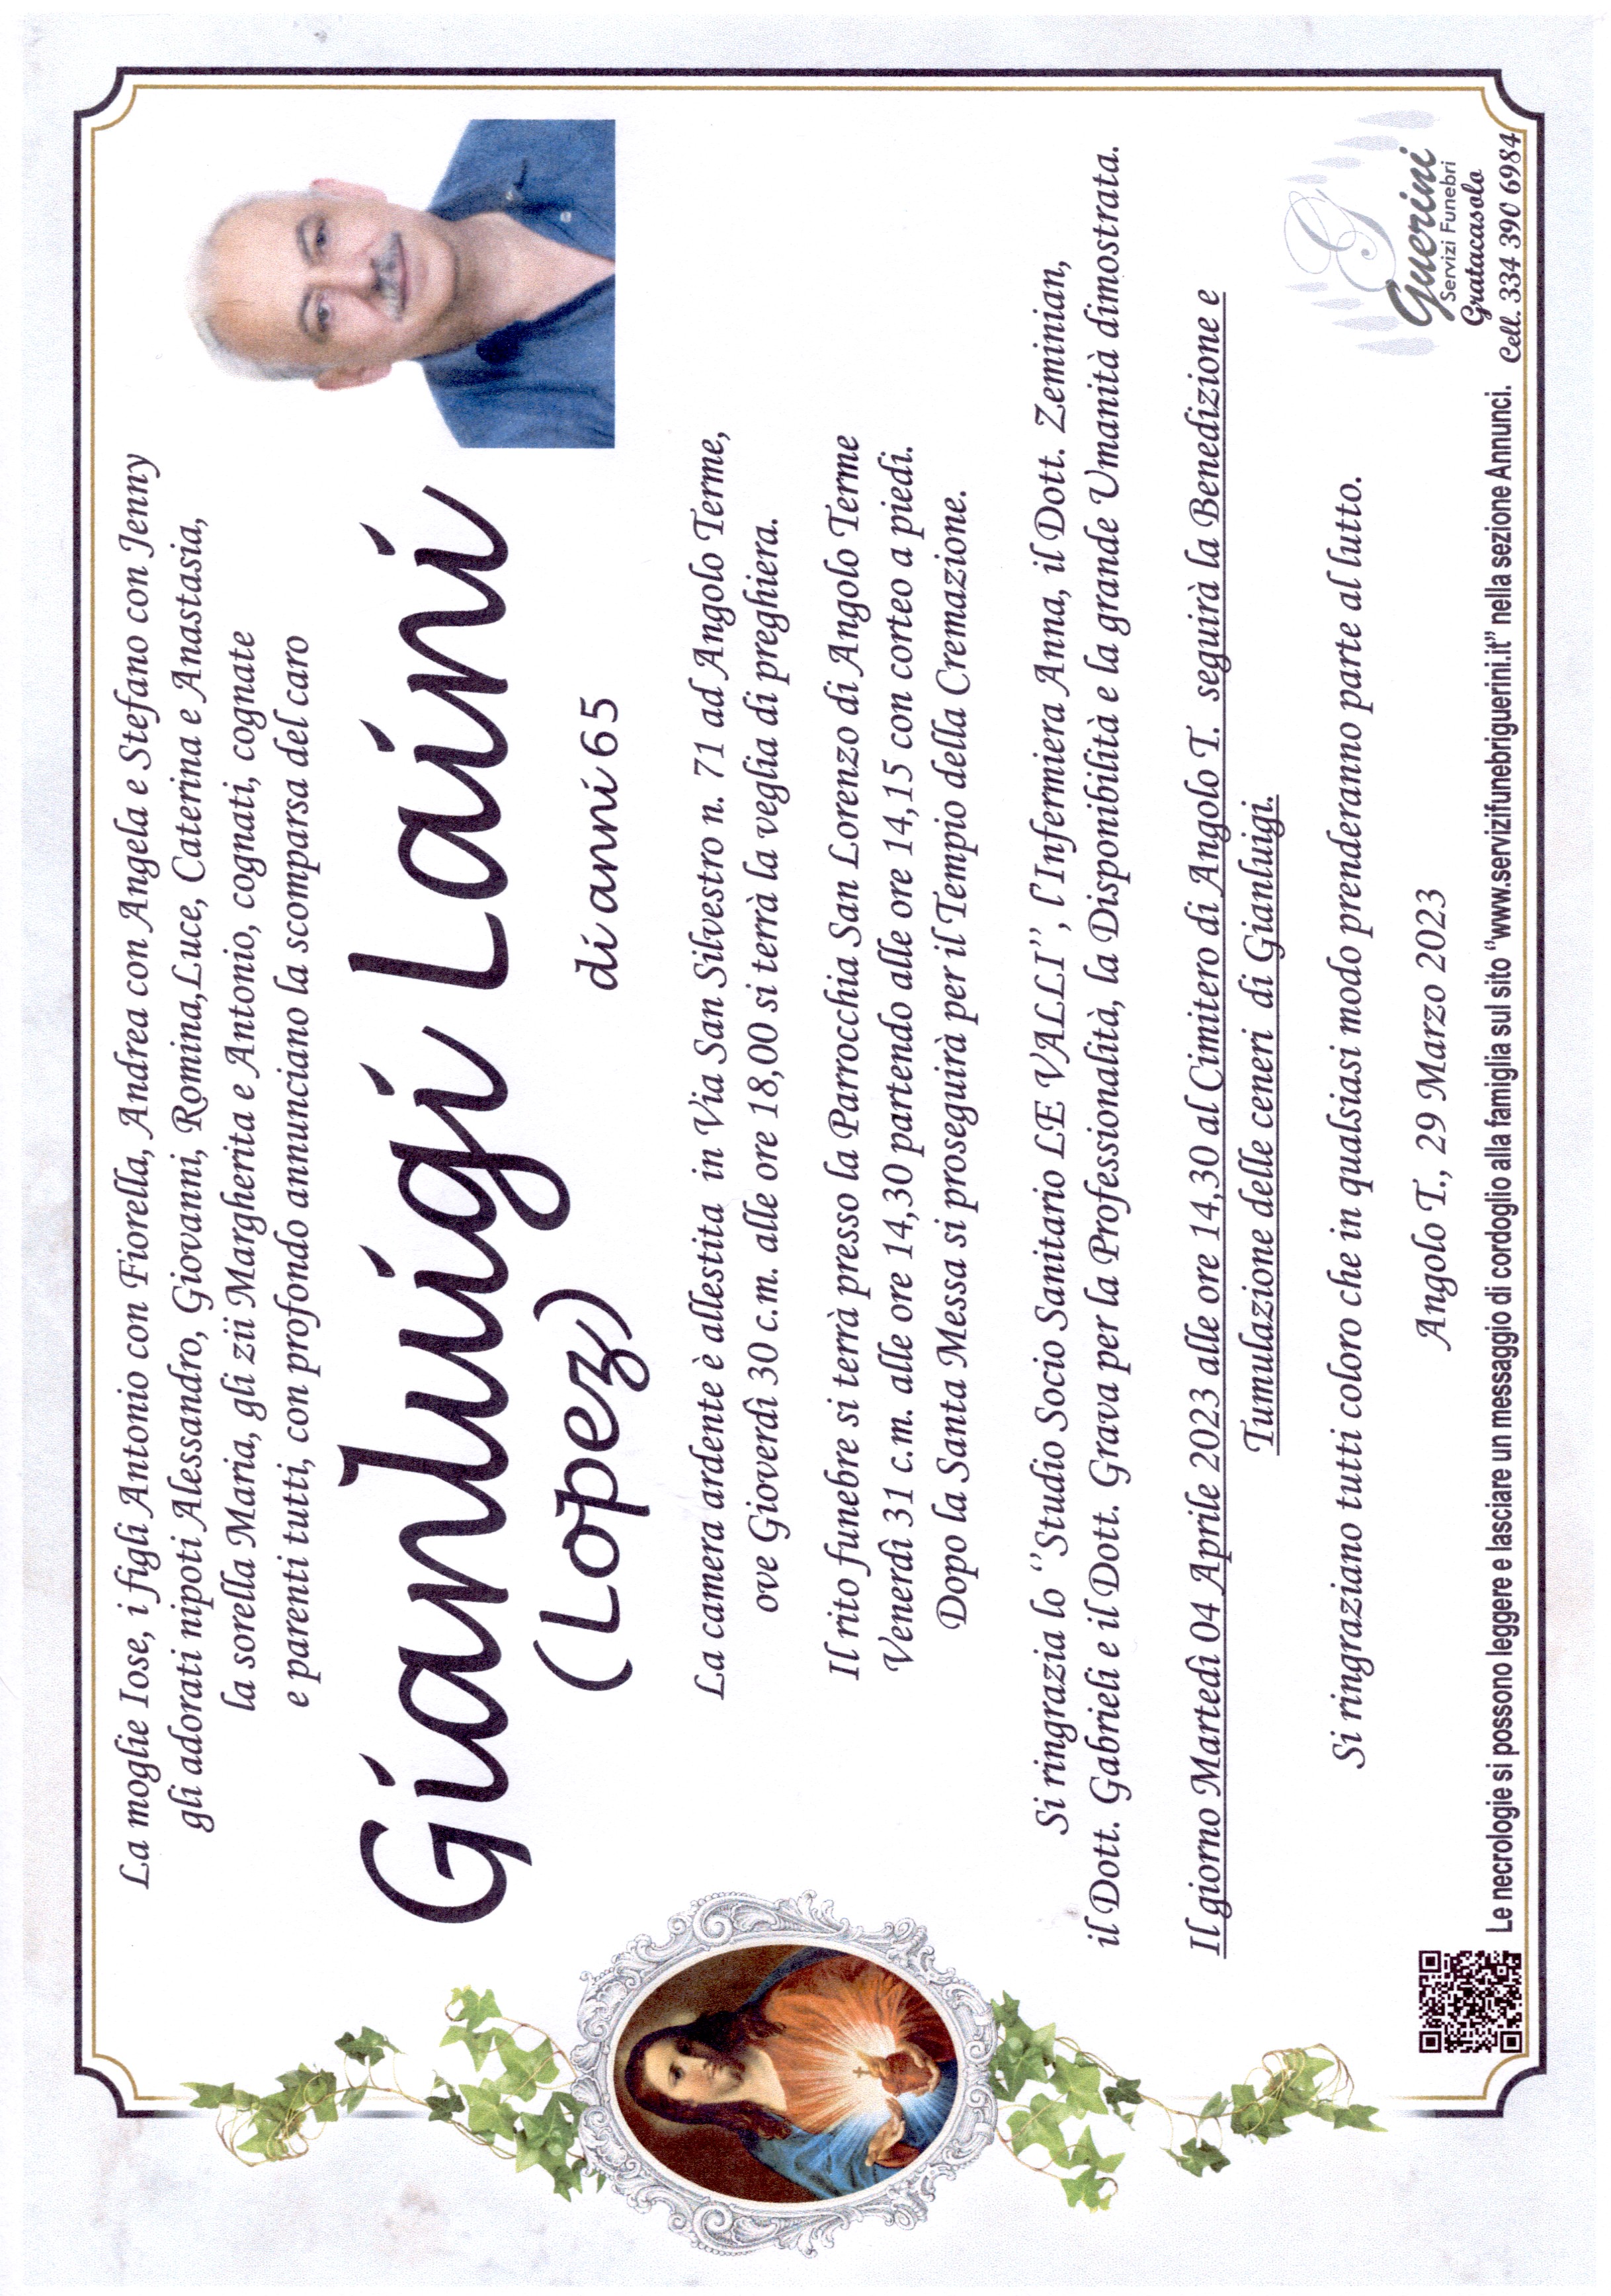 La moglie Iose, i figli Antonio con Fiorella, Andrea con Angela e Stefano con Jenny
gli adorati nipoti Alessandro, Giovanni, Romina,Luce, Caterina e Anastasia,
la sorella Maria, gli zii Margherita e Antonio, cognati, cognate
e parenti tutti, con profondo annunciano la scomparsa del caro
Gianluigi Laini
(Lopez)
di anni 65
La camera ardente è allestita in Via San Silvestro n. 71 ad Angolo Terme,
ove Gioverdì 30 c.m. alle ore 18,00 si terrà la veglia di preghiera.
Il rito funebre si terrà presso la Parrocchia San Lorenzo di Angolo Terme
Venerdì 31 c.m. alle ore 14,30 partendo alle ore 14,15 con corteo a piedi.
Dopo la Santa Messa si proseguirà per il Tempio della Cremazione.
Si ringrazia lo ‘’Studio Socio Sanitario LE VALLI’’, l’Infermiera Anna, il Dott. Zeminian,
il Dott. Gabrieli e il Dott. Grava per la Professionalità, la Disponibilità e la grande Umanità dimostrata.
Il giorno Martedì 04 Aprile 2023 alle ore 14,30 al Cimitero di Angolo T. seguirà la Benedizione e
Tumulazione delle ceneri di Gianluigi.
Si ringraziano tutti coloro che in qualsiasi modo prenderanno parte al lutto.
Angolo T., 29 Marzo 2023
Le necrologie si possono leggere e lasciare un messaggio di cordoglio alla famiglia sul sito “www.servizifunebriguerini.it” nella sezione Annunci.
G
Guerini
Servizi Funebri
Gratacasolo
Cell. 334 390 6984